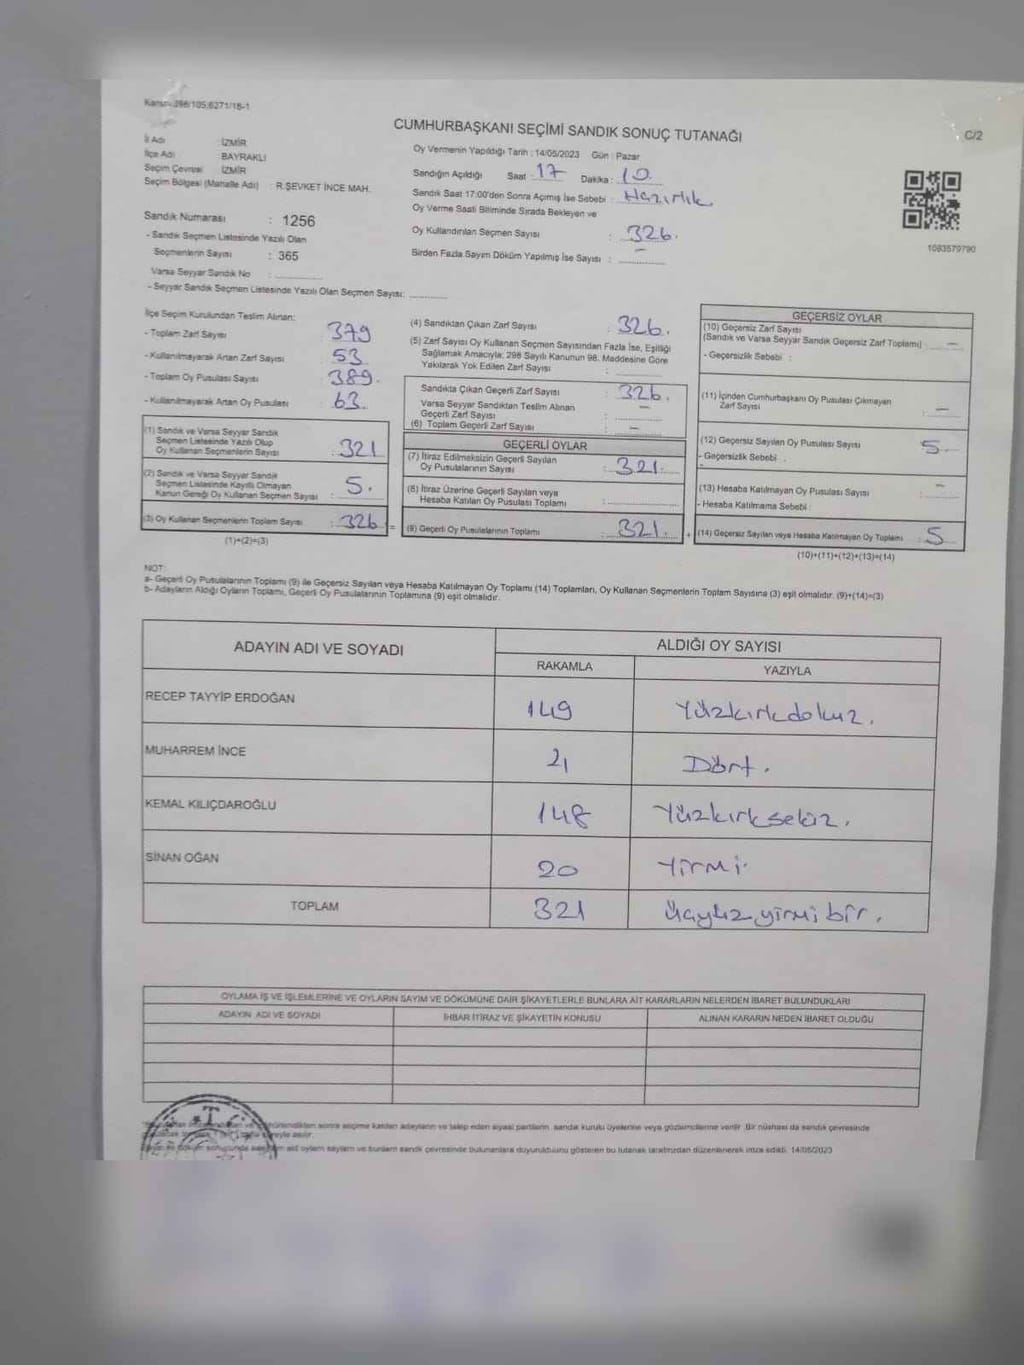 Kanun 298/105;6271/18-1
CUMHURBAŞKANI SEÇİMİ SANDIK SONUÇ TUTANAĞI
C/2
İl Adı : İZMİR
İlçe Adı : BAYRAKLI
Seçim Çevresi : İZMİR
Seçim Bölgesi (Mahalle Adı) : R.ŞEVKET İNCE MAH.
Sandık Numarası : 1256
- Sandık Seçmen Listesinde Yazılı Olan
Seçmenlerin Sayısı : 365
Varsa Seyyar Sandık No :
- Seyyar Sandık Seçmen Listesinde Yazılı Olan Seçmen Sayısı:
Oy Vermenin Yapıldığı Tarih : 14/05/2023 Gün : Pazar
Sandığın Açıldığı Saat : 17 Dakika : 10
Sandık Saat 17:00'den Sonra Açımış İse Sebebi : Hazırlık
Oy Verme Saati Bitiminde Sırada Bekleyen ve
Oy Kullandırılan Seçmen Sayısı : 326.
Birden Fazla Sayım Döküm Yapılmış İse Sayısı : —
1083579790
İlçe Seçim Kurulundan Teslim Alınan:
- Toplam Zarf Sayısı 379
- Kullanılmayarak Artan Zarf Sayısı 53
- Toplam Oy Pusulası Sayısı 389.
- Kullanılmayarak Artan Oy Pusulası 63
(1) Sandık ve Varsa Seyyar Sandık
Seçmen Listesinde Yazılı Olup
Oy Kullanan Seçmenlerin Sayısı : 321
(2) Sandık ve Varsa Seyyar Sandık
Seçmen Listesinde Kayıtlı Olmayan
Kanun Gereği Oy Kullanan Seçmen Sayısı : 5.
(3) Oy Kullanan Seçmenlerin Toplam Sayısı : 326 =
(1)+(2)=(3)
(4) Sandıktan Çıkan Zarf Sayısı : 326.
(5) Zarf Sayısı Oy Kullanan Seçmen Sayısından Fazla İse, Eşitliği
Sağlamak Amacıyla; 298 Sayılı Kanunun 98. Maddesine Göre
Yakılarak Yok Edilen Zarf Sayısı :
Sandıkta Çıkan Geçerli Zarf Sayısı : 326.
Varsa Seyyar Sandıktan Teslim Alınan
Geçerli Zarf Sayısı : —
(6) Toplam Geçerli Zarf Sayısı : —
GEÇERLİ OYLAR
(7) İtiraz Edilmeksizin Geçerli Sayılan
Oy Pusulalarının Sayısı : 321.
(8) İtiraz Üzerine Geçerli Sayılan veya
Hesaba Katılan Oy Pusulası Toplamı :
(9) Geçerli Oy Pusulalarının Toplamı : 321. +
GEÇERSİZ OYLAR
(10) Geçersiz Zarf Sayısı
(Sandık ve Varsa Seyyar Sandık Geçersiz Zarf Toplamı) : —
- Geçersizlik Sebebi :
(11) İçinden Cumhurbaşkanı Oy Pusulası Çıkmayan
Zarf Sayısı : —
(12) Geçersiz Sayılan Oy Pusulası Sayısı : 5.
- Geçersizlik Sebebi :
(13) Hesaba Katılmayan Oy Pusulası Sayısı : —
- Hesaba Katılmama Sebebi :
(14) Geçersiz Sayılan veya Hesaba Katılmayan Oy Toplamı : 5
(10)+(11)+(12)+(13)=(14)
NOT:
a- Geçerli Oy Pusulalarının Toplamı (9) ile Geçersiz Sayılan veya Hesaba Katılmayan Oy Toplamı (14) Toplamları, Oy Kullanan Seçmenlerin Toplam Sayısına (3) eşit olmalıdır. (9)+(14)=(3)
b- Adayların Aldığı Oyların Toplamı, Geçerli Oy Pusulalarının Toplamına (9) eşit olmalıdır.
ADAYIN ADI VE SOYADI ALDIĞI OY SAYISI
RAKAMLA YAZIYLA
RECEP TAYYİP ERDOĞAN 149 Yüzkırkdokuz.
MUHARREM İNCE 4 Dört.
KEMAL KILIÇDAROĞLU 148 Yüzkırksekiz.
SİNAN OĞAN 20 Yirmi.
TOPLAM 321 Üçyüzyirmibir.
OYLAMA İŞ VE İŞLEMLERİNE VE OYLARIN SAYIM VE DÖKÜMÜNE DAİR ŞİKAYETLERLE BUNLARA AİT KARARLARIN NELERDEN İBARET BULUNDUKLARI
ADAYIN ADI VE SOYADI İHBAR İTİRAZ VE ŞİKAYETİN KONUSU ALINAN KARARIN NEDEN İBARET OLDUĞU
sonra seçime katılan adayların ve talep eden siyasi partilerin, sandık kurulu üyelerine veya gözlemcilerine verilir. Bir nüshası da sandık çevresinde
süreyle asılır.
ait oyların sayımı ve bunların sandık çevresinde bulunanlara duyurulduğunu gösteren bu tutanak tarafımızdan düzenlenerek imza edildi. 14/05/2023
T C